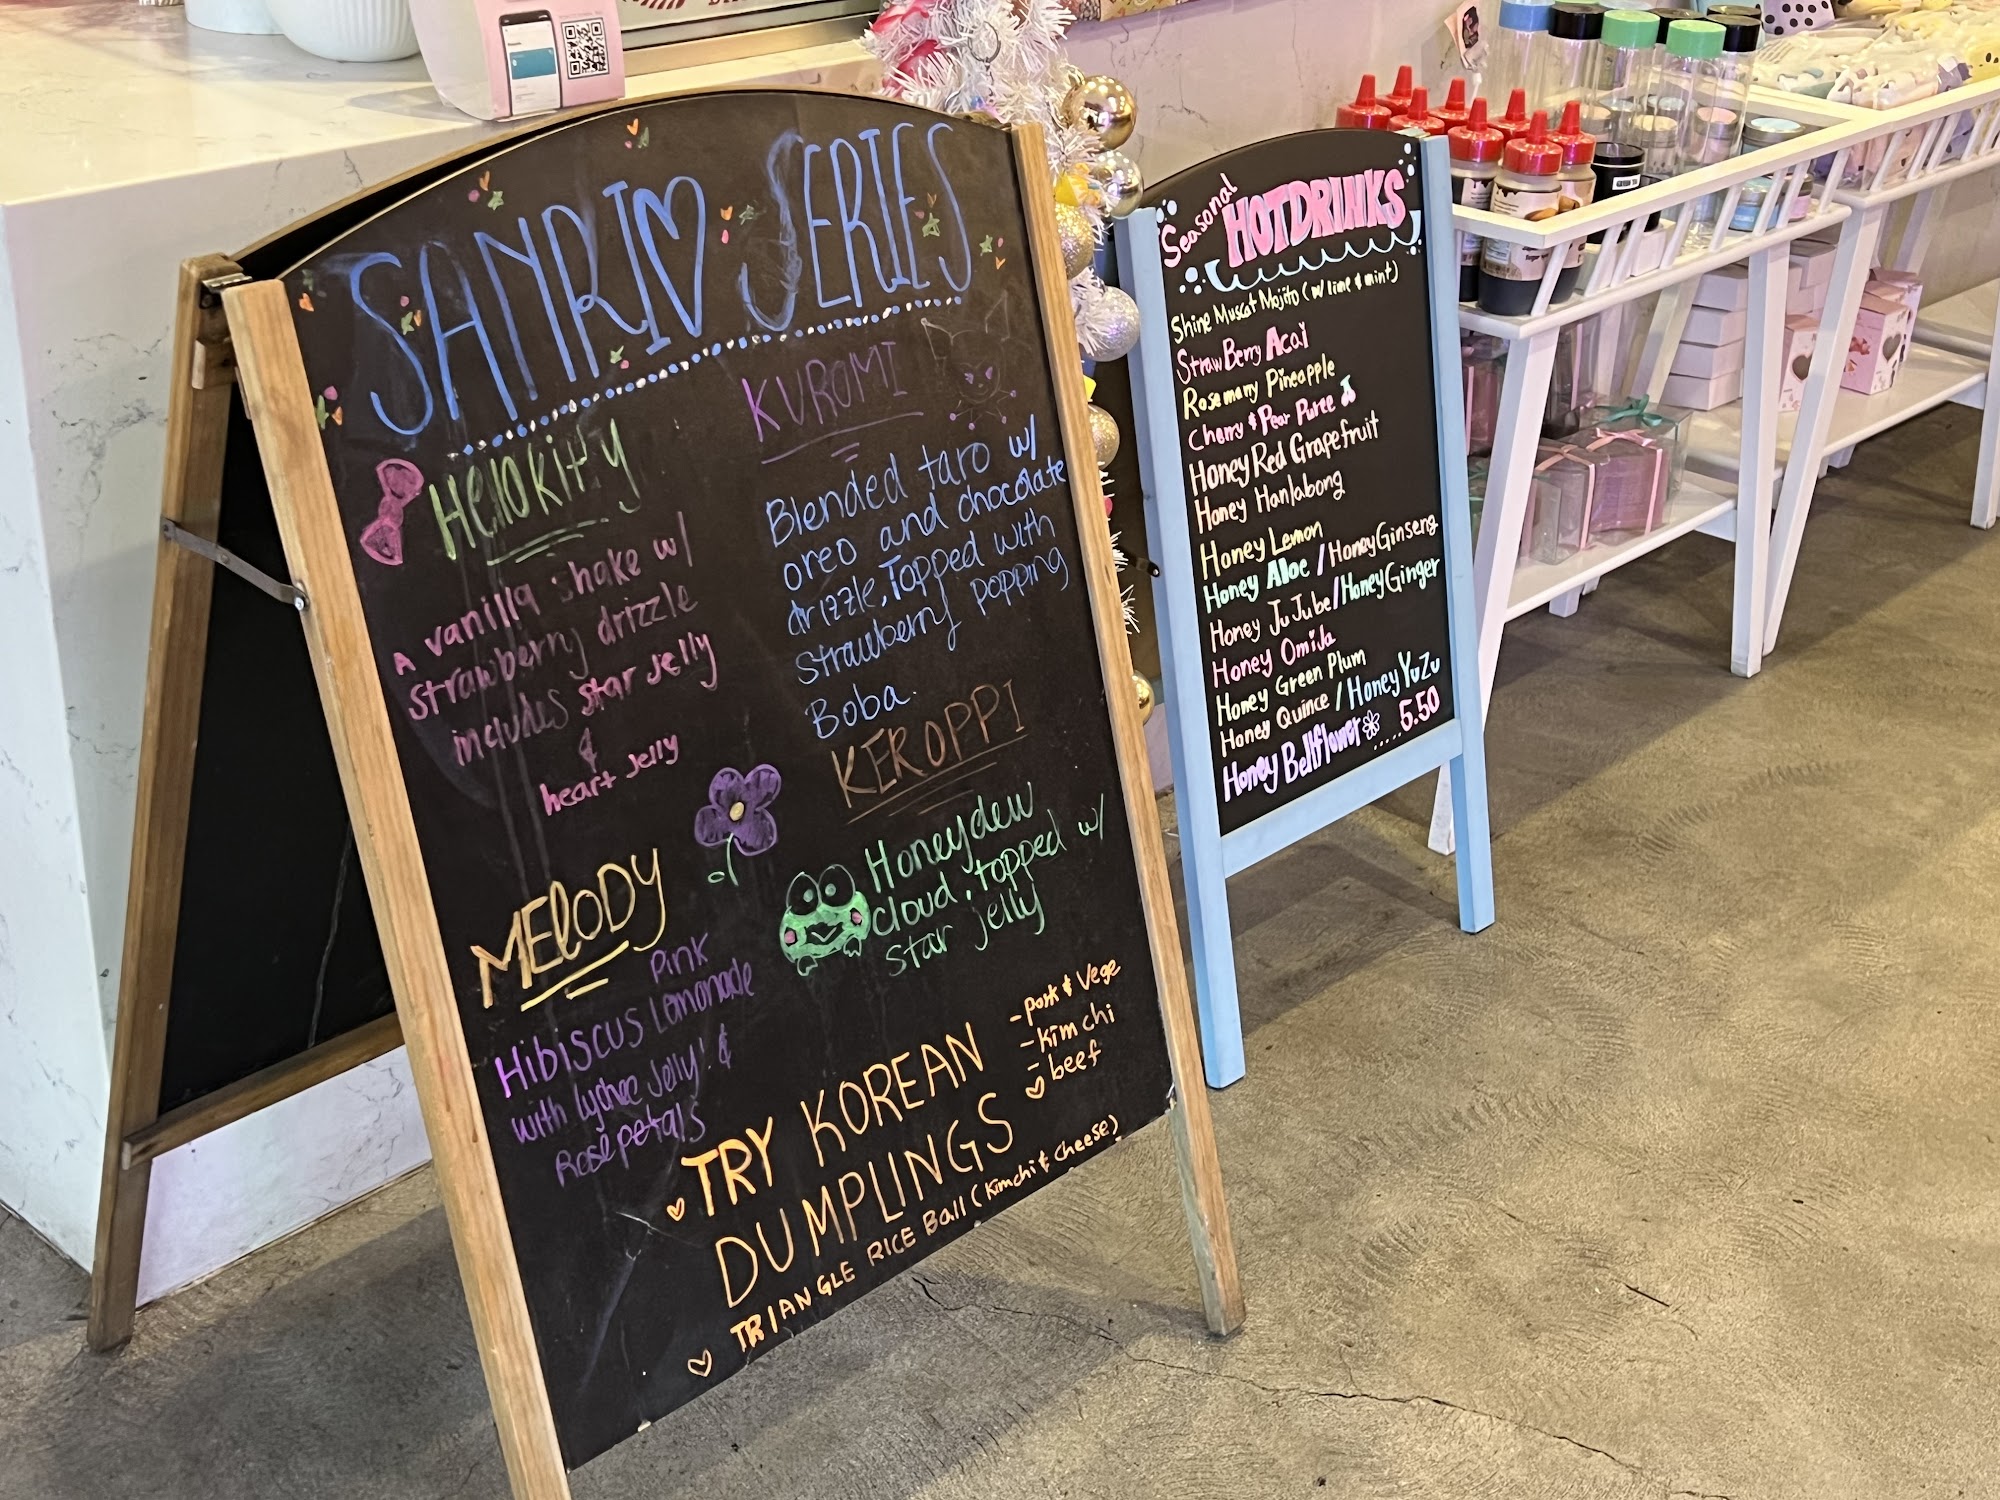 SANRIO SERIES
HelloKitty
A vanilla shake w/
strawberry drizzle
includes star jelly
&
heart jelly
KUROMI
Blended taro w/
oreo and chocolate
drizzle, Topped with
strawberry popping
Boba.
MElODY
Pink
Hibiscus Lemonade
with lychee jelly! &
Rose petals
KEROPPI
Honeydew
cloud, topped w/
star jelly
TRY KOREAN
DUMPLINGS
- pork & Vege
- kimchi
- beef
TRIANGLE RICE Ball (kimchi & cheese)
Seasonal
HOT DRINKS
Shine Muscat Mojito (w/ lime & mint)
StrawBerry Acai
Rosemary Pineapple
Cherry & Pear Puree
Honey Red Grapefruit
Honey Hanlabong
Honey Lemon
Honey Aloe / Honey Ginseng
Honey JuJube / Honey Ginger
Honey Omija
Honey Green Plum
Honey Quince / Honey Yuzu
Honey Bellflower ..... 5.50